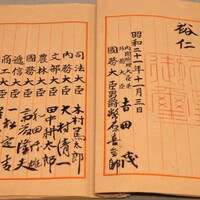 裕仁
昭和二十一年十一月三日
內閣總理大臣兼
外務大臣 吉田茂
國務大臣 男爵 幣原喜重郎
司法大臣 木村篤太郎
內務大臣 大村清一
文部大臣 田中耕太郎
農林大臣 和田博雄
國務大臣 斎藤隆夫
遞信大臣 一松定吉
商工大臣